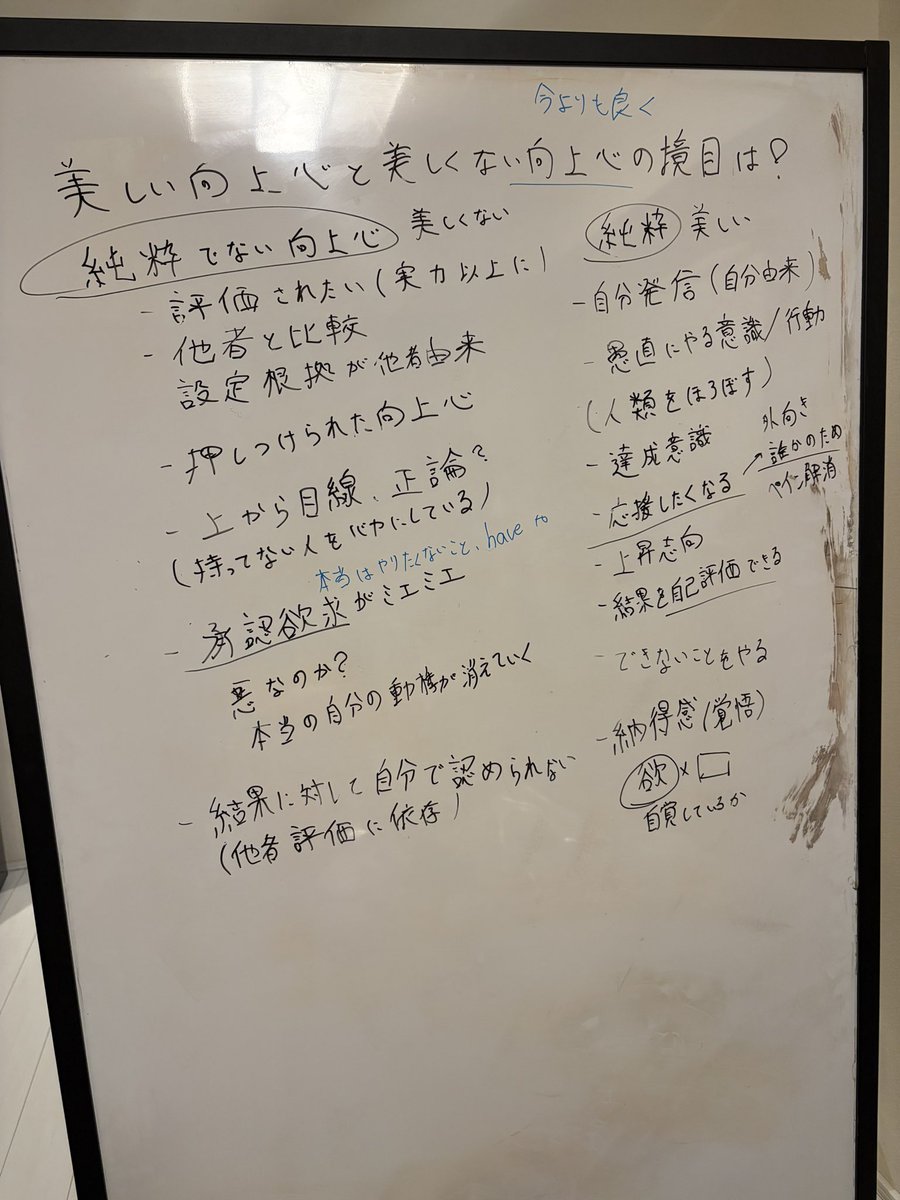 今よりも良く
美しい向上心と美しくない向上心の境目は?
純粋でない向上心 美しくない
- 評価されたい(実力以上に)
- 他者と比較
設定根拠が他者由来
- 押しつけられた向上心
- 上から目線、正論?
(持ってない人をバカにしている)
本当はやりたくないこと、have to
- 承認欲求がミエミエ
悪なのか?
本当の自分の動機が消えていく
- 結果に対して自分で認められない
(他者評価に依存)
純粋 美しい
- 自分発信(自分由来)
- 愚直にやる意識/行動
(人類をほろぼす)
- 達成意識
- 応援したくなる → 外向き
誰かのため
ペイン解消
- 上昇志向
- 結果を自己評価できる
- できないことをやる
- 納得感(覚悟)
欲 ×
自覚しているか